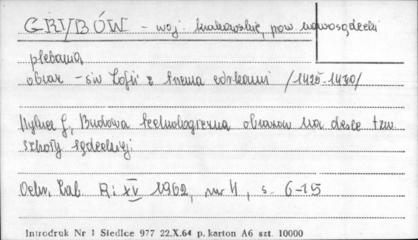 GRYBÓW - woj. krakowskie, pow. nowosądecki
plebania
obraz - św Zofii z trzema córkami /1425-1430/
Hylna J, Budowa technologiczna obrazów na desce tzw.
szkoły sądeckiej.
Ochr. Zab. R: XV 1962, nr 4, s. 6-15
Introdruk Nr 1 Siedlce 977 22.X.64 p. karton A6 szt. 10000